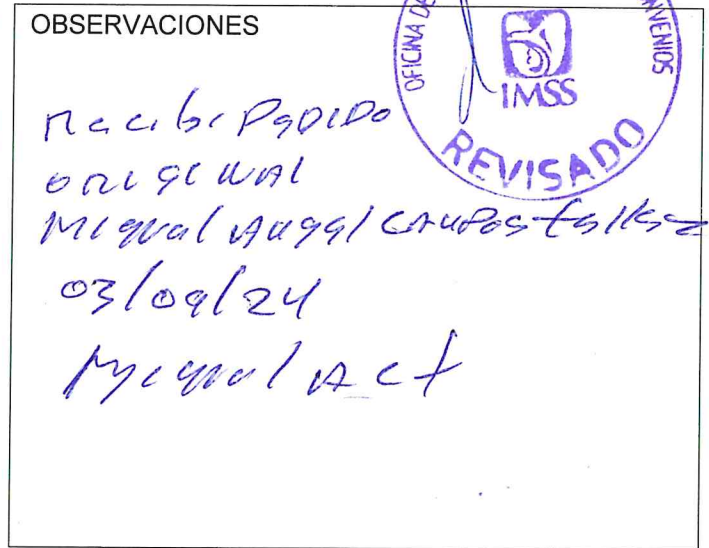 OBSERVACIONES
OFICINA DE
CONVENIOS
IMSS
REVISADO
Recibi Pedido
original
Miguel Angel
03/09/24
Miguel ACF